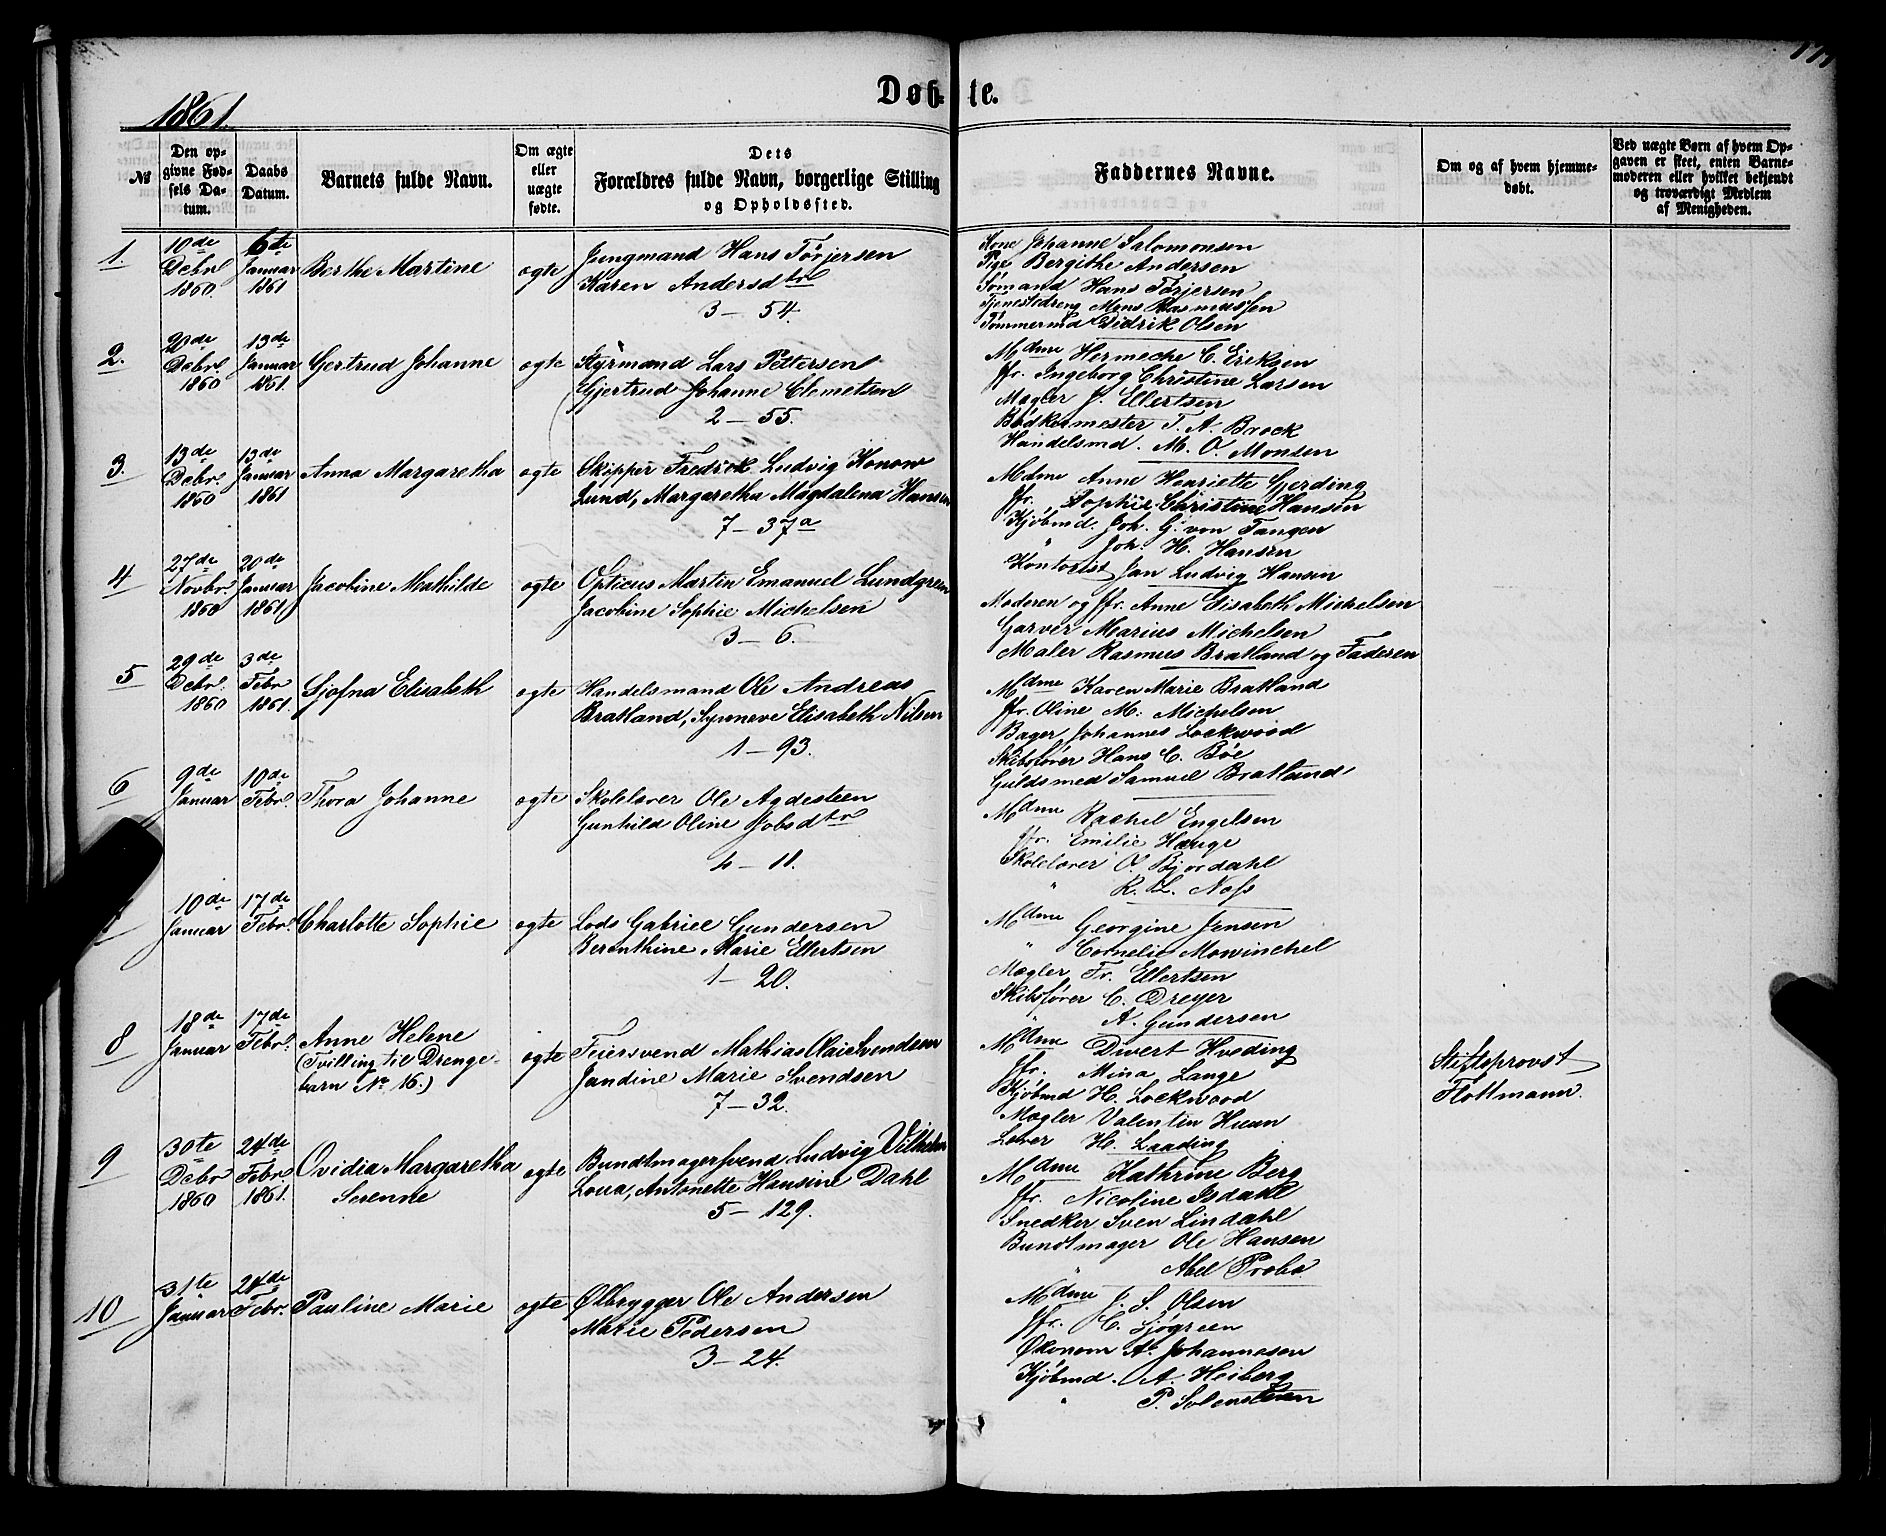 1861.
Døbte.
№
Den opgivne Fødsels Datum.
Daabs Datum.
Barnets fulde Navn.
Om ægte eller uægte fødte.
Dets Forældres fulde Navn, borgerlige Stilling og Opholdssted.
Faddernes Navne.
Om og af hvem hjemmedøbt.
Ved uægte Børn af hvem Opgaven er skeet, enten Barnemoderen eller hvilket bekjendt og troværdigt Medlem af Menigheden.
1.
10de Debr. 1860.
6te Januar 1861
Berthe Martine
ægte
Jungmand Hans Törjersen
Karen Andersdtr
3 – 54.
Kone Johanne Salomonsen
Pige Bergithe Andersen
Sömand Hans Törjersen
Tjenestedreng Mons Rasmussen
Tömmermd Didrik Olsen
2.
20de Debr. 1860
13de Januar 1861.
Gertrud Johanne
ægte
Styrmand Lars Pettersen
Gjertrud Johanne Clemetsen
2 – 55.
Mdme Hermeche C. Eriksen
Jfr. Ingeborg Christine Larsen
Mægler J. Ellertsen
Bødkermester T. A. Brock
Handelsmd. M. O. Monsen
3.
13de Debr. 1860
13de Januar 1861
Anna Margaretha
ægte
Skipper Fredrik Ludvig Konow
Lund, Margaretha Magdalena Hansen
7 – 37a
Mdme Anne Henriette Gjerding
Jfr. Sophie Christine Hansen
Kjöbmd. Joh. G. von Tangen
" Joh. H. Hansen
Kontorist Jan Ludvig Hansen
4
27de Novbr. 1860
20de Januar 1861.
Jacobine Mathilde
ægte
Opticus Martin Emanuel Lundgreen
Jacobine Sophie Michelsen
3 – 6.
Moderen og Jfr. Anne Elisabeth Michelsen
Garver Marius Michelsen
Maler Rasmus Bratland og Faderen
5
29de Debr. 1860
3de Febr 1861.
Sjofna Elisabeth
ægte
Handelsmand Ole Andreas
Bratland, Synneve Elisabeth Nilsen
1 – 93.
Mdme Karen Marie Bratland
Jfr. Oline M. Michelsen
Bager Johannes Lockwood
Skibsfører Hans C. Böe
Guldsmed Samuel Bratland
6
9de Januar
10de Febr.
Thora Johanne
ægte
Skolelærer Ole Agdesteen
Gunhild Oline Jobsdtr
4 – 11.
Mdme Rachel Engelsen
Jfr. Emilie Hauge
Skolelærer O. Bjordahl
" R. L. Næss
10de Januar
17de Febr.
Charlotte Sophie
ægte
Lods Gabriel Gundersen
Berenthine Marie Ellertsen
1 – 20.
Mdme Georgine Jensen
" Cornelia Mowinchel
Mægler Fr. Ellertsen
Skibsfører C. Dreyer
" A. Gundersen
8
18de Januar
17de Febr.
Anne Helene
(Tvilling til Drenge-
barn No 16.)
ægte
Feiersvend Mathias Olai Svendsen
Jandine Marie Svendsen
7 – 32.
Mdme Divert Hveding
Jfr. Mina Lange
Kjöbmd H. Lockwood
Mægler Valentin Huun
Lærer H. Laading
Stiftsprovst
Flottmann.
9
30te Debr 1860
24de Febr. 1861.
Ovidia Margaretha
Serenne
ægte
Bundtmagersvend Ludvig Vilhelm
Loua, Antonette Hansine Dahl
5 – 129.
Mdme Kathrine Berg
Jfr. Nicoline Isdahl
Snedker Sven Lindahl
Bundtmager Ole Hansen
" Abel Probe
10
31te Januar
24de Febr.
Pauline Marie
ægte
Ølbrygger Ole Andersen
Marie Pedersen
3 – 24.
Mdme J. S. Olsen
Jfr. C. Sjögreen
Økonom A. Johannesen
Kjöbmd. A. Heiberg
" P. Svlensteen